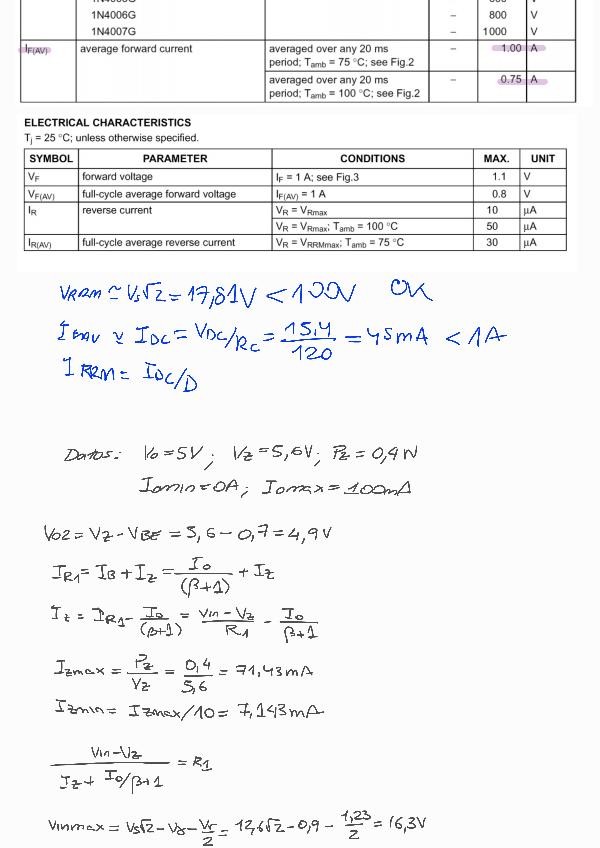 1N4006G – 800 V
1N4007G – 1000 V
IF(AV) average forward current averaged over any 20 ms – 1.00 A
period; Tamb = 75 °C; see Fig.2
averaged over any 20 ms – 0.75 A
period; Tamb = 100 °C; see Fig.2
ELECTRICAL CHARACTERISTICS
Tj = 25 °C; unless otherwise specified.
SYMBOL PARAMETER CONDITIONS MAX. UNIT
VF forward voltage IF = 1 A; see Fig.3 1.1 V
VF(AV) full-cycle average forward voltage IF(AV) = 1 A 0.8 V
IR reverse current VR = VRmax 10 μA
VR = VRmax; Tamb = 100 °C 50 μA
IR(AV) full-cycle average reverse current VR = VRRMmax; Tamb = 75 °C 30 μA
VRRM ≃ Vs√2 = 17,81V < 100V OK
IFAV ≃ IDC = VDC/RC = 15,4/120 = 45mA < 1A
IRRM = IDC/D
Datos: Vo = 5V; Vz = 5,6V; Pz = 0,4W
Iomin = 0A; Iomax = 100mA
Vo2 = Vz - VBE = 5,6 - 0,7 = 4,9V
IR1 = IB + Iz = Io/(β+1) + Iz
Iz = IR1 - Io/(β+1) = Vin - Vz/R1 - Io/β+1
Izmax = Pz/Vz = 0,4/5,6 = 71,43mA
Izmin = Izmax/10 = 7,143mA
Vin - Vz/Iz + Io/β+1 = R1
Vinmax = Vs√2 - Vγ - Vr/2 = 12,6√2 - 0,9 - 1,23/2 = 16,3V